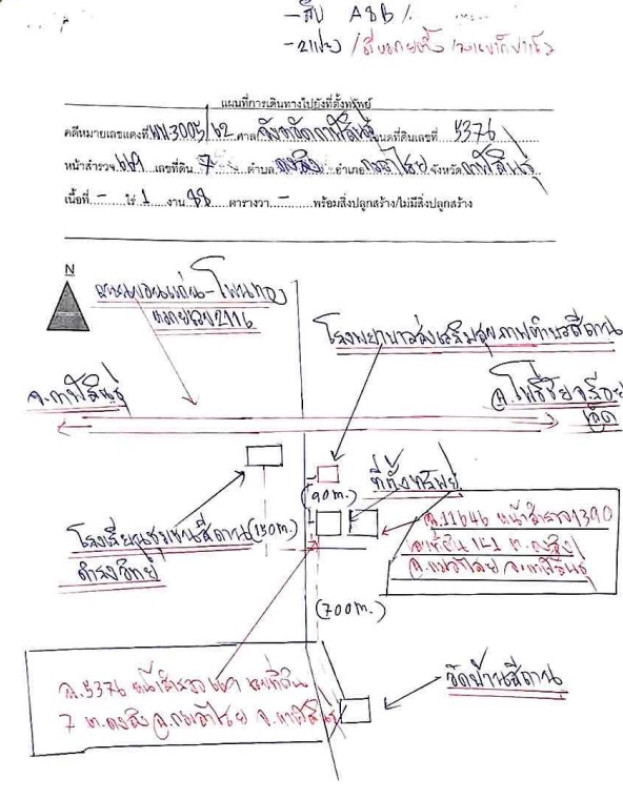 แผนที่การเดินทางไปยังที่ตั้งทรัพย์
คดีหมายเลขแดงที่ ผบ.3005/62 ศาล จังหวัดกาฬสินธุ์ โฉนดที่ดินเลขที่ 5376
หน้าสำรวจ 669 เลขที่ดิน 7 ตำบล ดงลิง อำเภอ กมลาไสย จังหวัด กาฬสินธุ์
เนื้อที่ - ไร่ 1 งาน 88 ตารางวา - พร้อมสิ่งปลูกสร้าง/ไม่มีสิ่งปลูกสร้าง
N
หมายเลข 2116
โรงพยาบาลส่งเสริมสุขภาพตำบลสีถาน
จ.กาฬสินธุ์
อ.โพธิ์ชัย จ.ร้อย
เอ็ด
(90 m.)
ที่ตั้งทรัพย์
โรงเรียนชุมชนสีถาน (150 m.)
ดำรงวิทย์
ฉ.11646 หน้าสำรวจ 1390
เลขที่ดิน 141 ต.ดงลิง
อ.กมลาไสย จ.กาฬสินธุ์
(700 m.)
ฉ.5376 หน้าสำรวจ 669 เลขที่ดิน
7 ต.ดงลิง อ.กมลาไสย จ.กาฬสินธุ์
วัดบ้านสีถาน